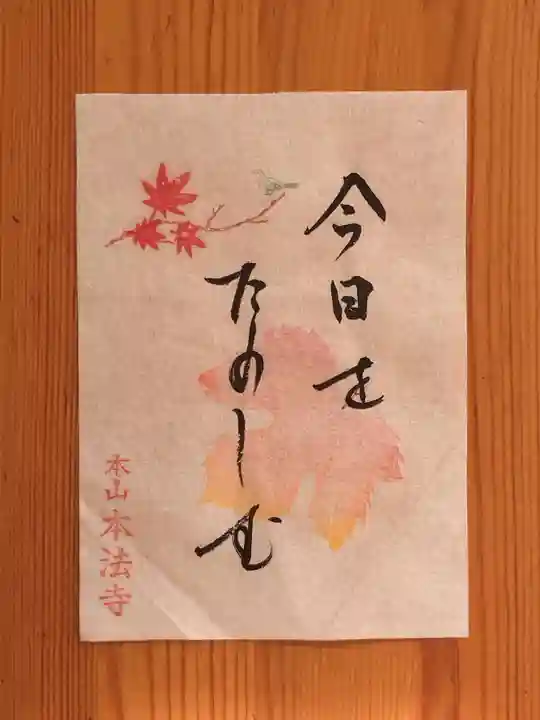 今日を
たのしむ
本山本法寺